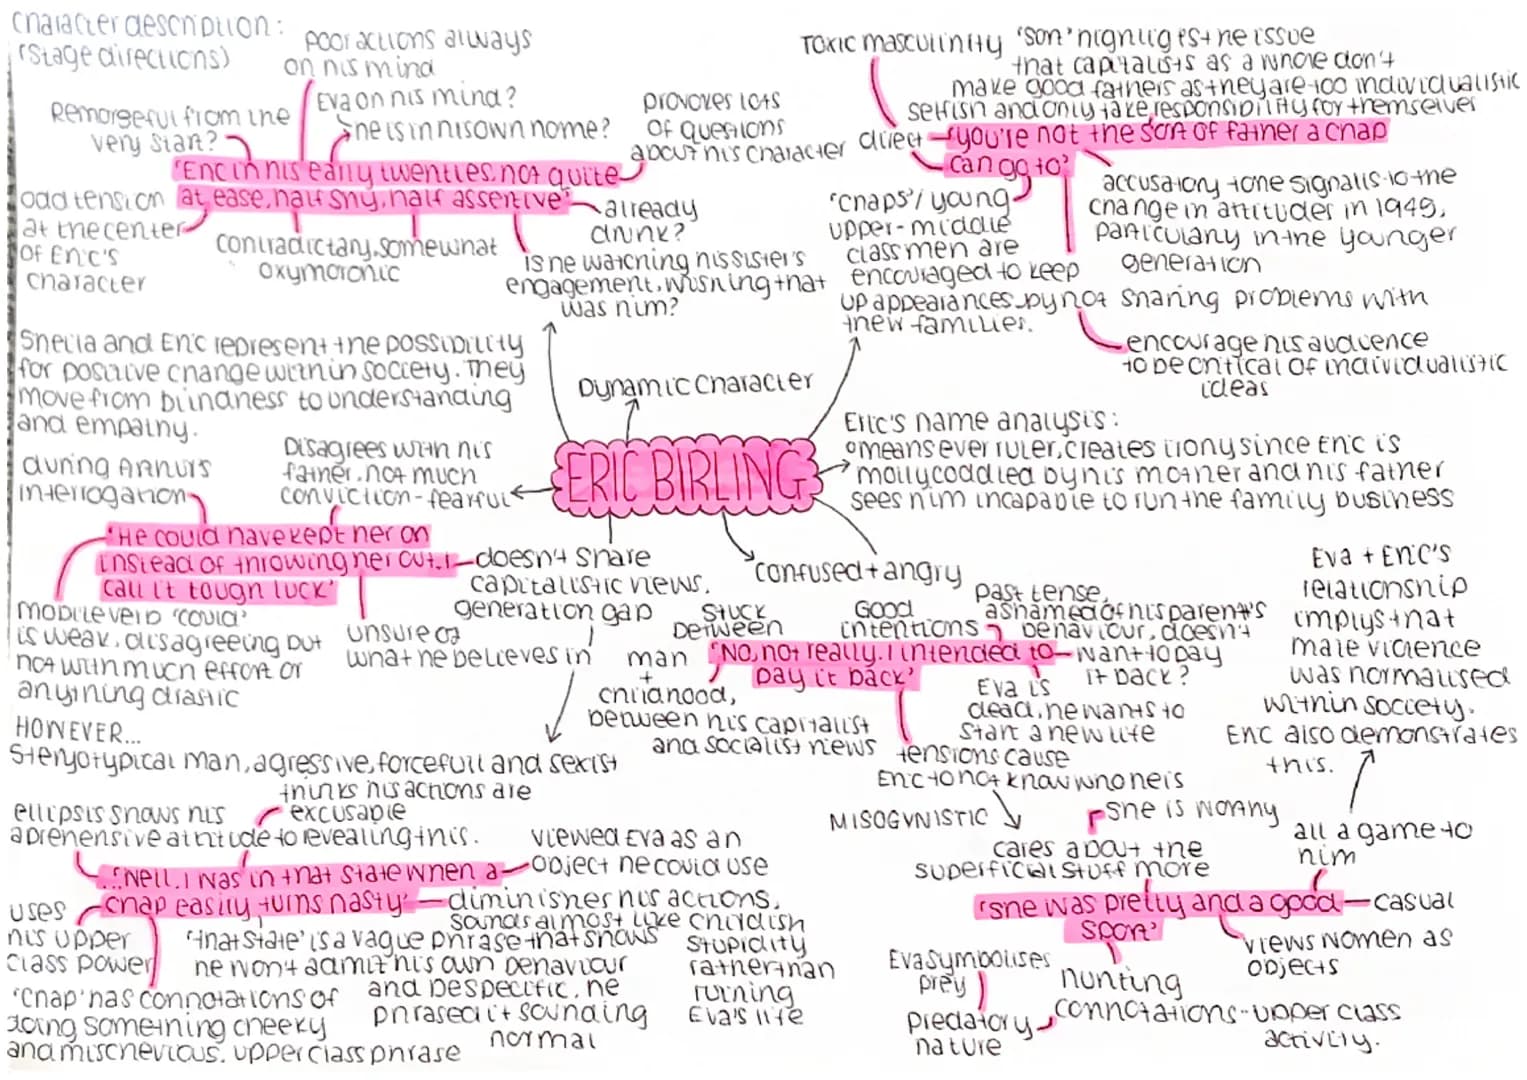 character description:
(stage directions)
poor actions always
on his mind
Remorseful from the
very start?
Eva on his mind?
she is in his own home?
provokes lots
of questions
about his character
'Eric in his early twenties, not quite
at ease, half shy, half assertive'
odd tension
at the center
of Eric's
character
contradictary, somewhat
oxymoronic
already
drunk?
is he watching his sister's
engagement, wishing that
was him?
Toxic masculinity
'son' highlights the issue
that capitalists as a whole don't
make good fathers as they are too individualistic
selfish and only take responsibility for themselves
direct
'you're not the sort of father a chap
can go to'
'chaps'/ young
upper-middle
class men are
encouraged to keep
up appearances by not sharing problems with
their families.
accusatory tone signalls to the
change in attitudes in 1945,
particulary in the younger
generation
encourage his audience
to be critical of individualistic
ideas
Sheila and Eric represent the possibility
for positive change within society. They
move from blindness to understanding
and empathy.
Dynamic Character
ERIC BIRLING
Eric's name analysis:
means ever ruler, creates irony since Eric is
mollycoddled by his mother and his father
sees him incapable to run the family business
during Arthur's
interrogation
Disagrees with his
father, not much
conviction - fearful
'He could have kept her on
instead of throwing her out. I
call it tough luck'
doesn't share
capitalistic views.
generation gap
modile verb 'could'
is weak, disagreeing but
not with much effort or
anything drastic
unsure of
what he believes in
confused + angry
stuck
between
man
+
childhood,
between his capitalist
and socialist views
Good
intentions
past tense,
ashamed of his parent's
behaviour, doesn't
want to pay
it back?
'No, not really. I intended to
pay it back'
Eva is
dead, he wants to
start a new life
tensions cause
Eric to not know who he is
Eva + Eric's
relationship
implys that
male violence
was normalised
within society.
Eric also demonstrates
this.
HOWEVER...
Steryotypical man, agressive, forcefull and sexist
thinks his actions are
excusable
ellipsis shows his
aprehensive attitude to revealing this.
viewed Eva as an
object he could use
'...Well, I was in that state when a
chap easily turns nasty'
uses
his upper
class power
diminishes his actions,
sounds almost like childish
stupidity
rather than
ruining
Eva's life
'that state' is a vague phrase that shows
he won't admit his own behaviour
and be specific, he
phrased it sounding
normal
'Chap' has connotations of
doing something cheeky
and mischevious. upper class phrase
MISOGYNISTIC
cares about the
superficial stuff more
she is worthy
all a game to
him
'she was pretty and a good
sport'
casual
views women as
objects
Eva symbolises
prey
predatory
nature
hunting
connotations - upper class
activity.